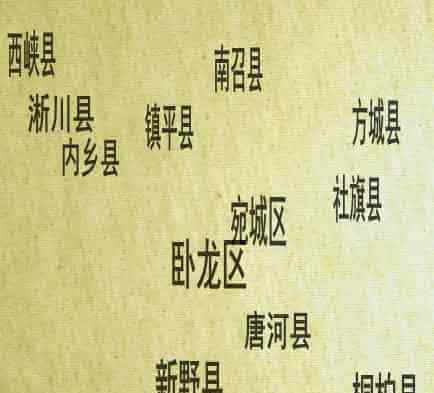 西峡县
南召县
淅川县
镇平县
方城县
内乡县
社旗县
宛城区
卧龙区
唐河县
新野县
桐柏县